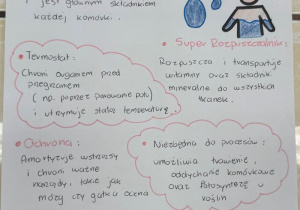 jest głównym składnikiem
każdej komórki.
• Termostat:
Chroni organizm przed
przegrzaniem
( np. poprzez parowanie potu)
i utrzymuje stałą temperaturę
• Super Rozpuszczalnik:
Rozpuszcza i transportuje
witaminy oraz składniki
mineralne do wszystkich
tkanek.
• Ochrona:
Amortyzuje wstrząsy
i chroni ważne
narządy, takie jak
mózg czy gałka oczna
• Niezbędna do procesów:
umożliwia trawienie,
oddychanie komórkowe
oraz fotosyntezę u
roślin